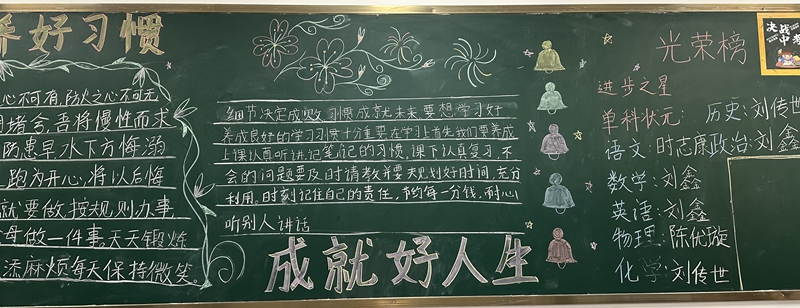 养好习惯
心不可有,防火之心不可无
堵舍,吾将慢性而求
防患早水下方悔溺
跑为开心,将以后悔
就要做,按规则办事,
母做一件事,天天锻炼
添麻烦每天保持微笑。
细节决定成败,习惯成就未来,要想学习好
养成良好的学习习惯十分重要,在学习上首先我们要养成
上课认真听讲,记笔记的习惯,课下认真复习,不
会的问题要及时请教,并要夫规划好时间,充分
利用,时刻记住自己的责任,节约每一分钱,耐心
听别人讲话
成就好人生
光荣榜
进步之星
单科状元: 历史:刘传世
语文:时志康 政治:刘鑫
数学:刘鑫
英语:刘鑫
物理:陈优璇
化学:刘传世
决战
中考